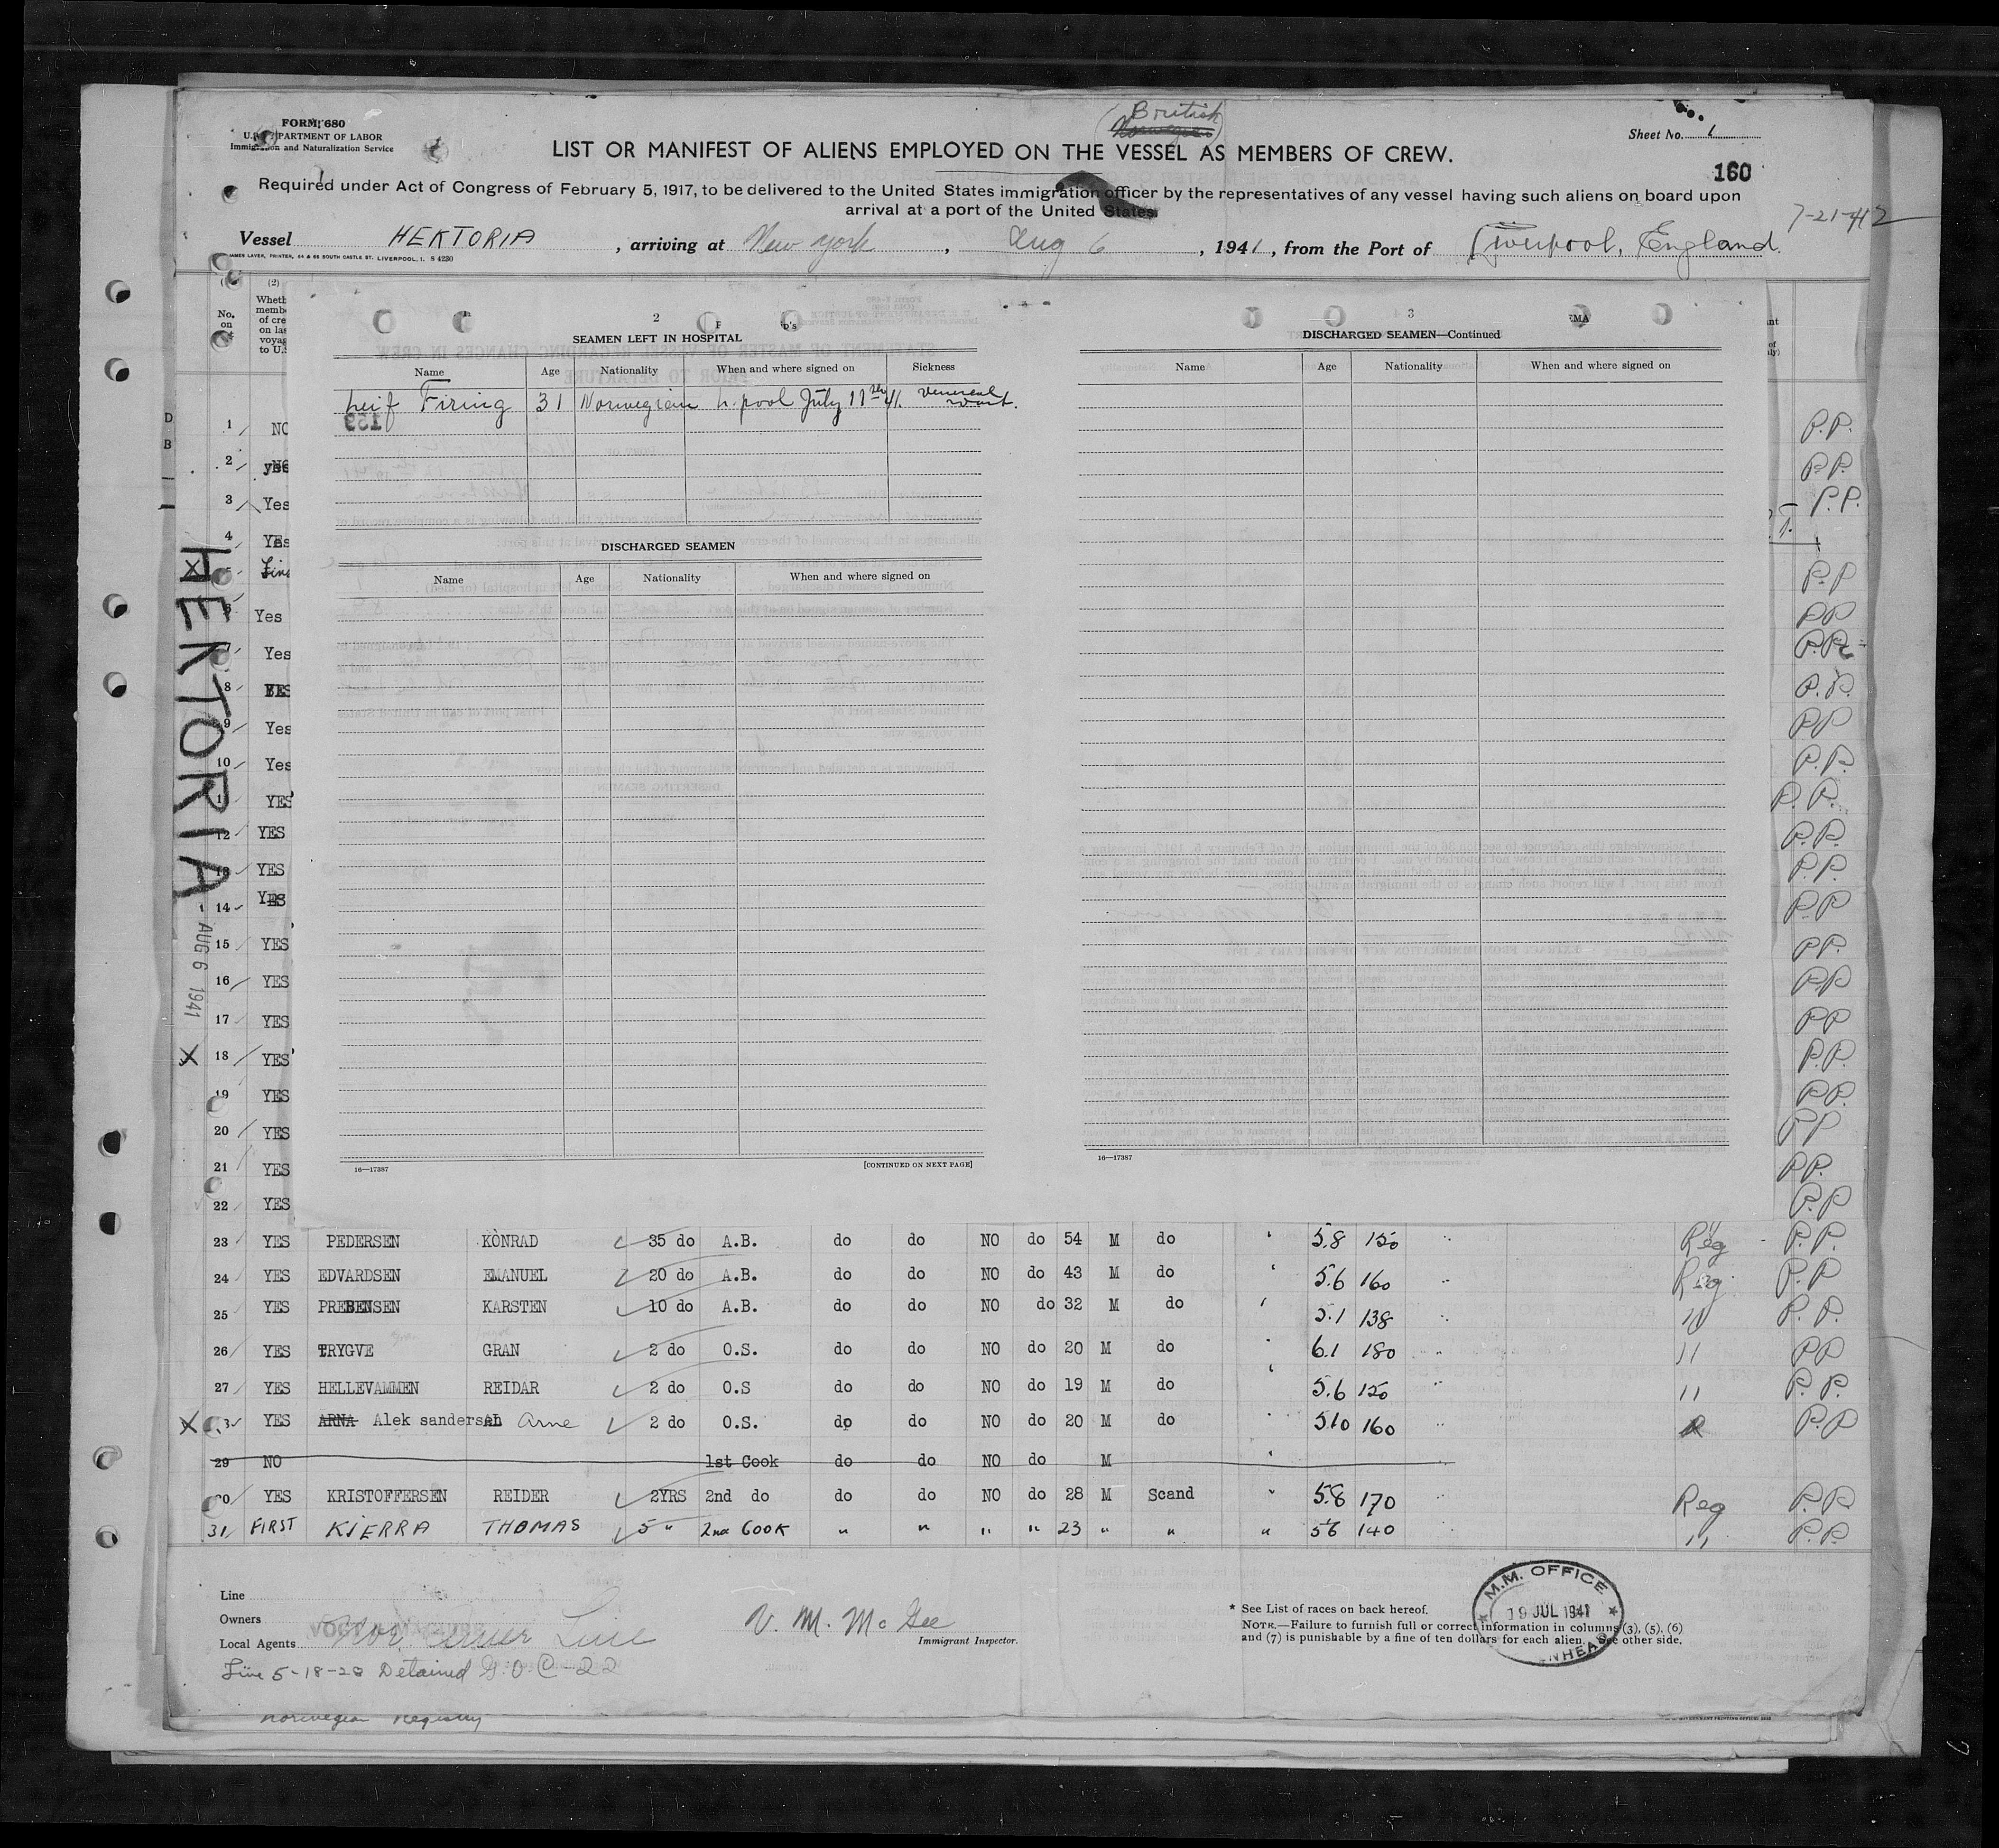 FORM 680
U.S. DEPARTMENT OF LABOR
Immigration and Naturalization Service
(British
Norwegian)
Sheet No. 1
LIST OR MANIFEST OF ALIENS EMPLOYED ON THE VESSEL AS MEMBERS OF CREW.
160
Required under Act of Congress of February 5, 1917, to be delivered to the United States immigration officer by the representatives of any vessel having such aliens on board upon
arrival at a port of the United States
7-21-41
Vessel HEKTORIA, arriving at New York, Aug 6, 1941, from the Port of Liverpool, England.
JAMES LAVER, PRINTER, 64 & 66 SOUTH CASTLE ST. LIVERPOOL, 1. S 4230
(2)
No. on
Wheth
memb
of cre
on las
voyag
to U.S
2
SEAMEN LEFT IN HOSPITAL
Name Age Nationality When and where signed on Sickness
Leif Firing 31 Norwegian L. pool July 11th 41. Venereal wart.
DISCHARGED SEAMEN
Name Age Nationality When and where signed on
16—17387 [CONTINUED ON NEXT PAGE]
3
DISCHARGED SEAMEN—Continued
Name Age Nationality When and where signed on
16—17387
HEKTORIA
AUG 6 1941
1 NO P.P.
2 yes P.P.
3 Yes P.P.
4 Yes
X
Yes P.P.
7 Yes
8 YES P.P.
9 Yes PP
10 Yes P.P.
YES P.P.
12 YES P.P.
13 YES P.P.
14 Yes P.P
15 YES PP.
16 YES PP
17 YES PP
X 18 YES P.P.
19 YES PP.
20 YES PP
21 YES PP.
22 YES P.P
23 YES PEDERSEN KONRAD 35 do A.B. do do NO do 54 M do " 5.8 150 Reg P.P.
24 YES EDVARDSEN EMANUEL 20 do A.B. do do NO do 43 M do " 5.6 160 Reg. P.P
25 YES PREBENSEN KARSTEN 10 do A.B. do do NO do 32 M do " 5.1 138 " P.P.
26 YES TRYGVE GRAN 2 do O.S. do do NO do 20 M do " 6.1 180 " PP
27 YES HELLEVAMMEN REIDAR 2 do O.S do do NO do 19 M do " 5.6 120 " P.P.
X YES ARNA Alek sandersen Arne 2 do O.S. do do NO do 20 M do " 5.10 160 P.P
29 NO 1st Cook do do NO do M "
30 YES KRISTOFFERSEN REIDER 2YRS 2nd do do do NO do 28 M Scand " 5.8 170 Reg P.P
31 FIRST KIERRA THOMAS 5 " 2nd COOK " " " " 23 " " " 5.6 140 " P.P.
Line
Owners
Local Agents
Line 5-18-28 Detained G.O. C-22
Norwegian Registry
V. M. McGee
Immigrant Inspector.
* See List of races on back hereof.
NOTE.—Failure to furnish full or correct information in columns (3), (5), (6)
and (7) is punishable by a fine of ten dollars for each alien. See other side.
M.M. OFFICE
19 JUL 1941